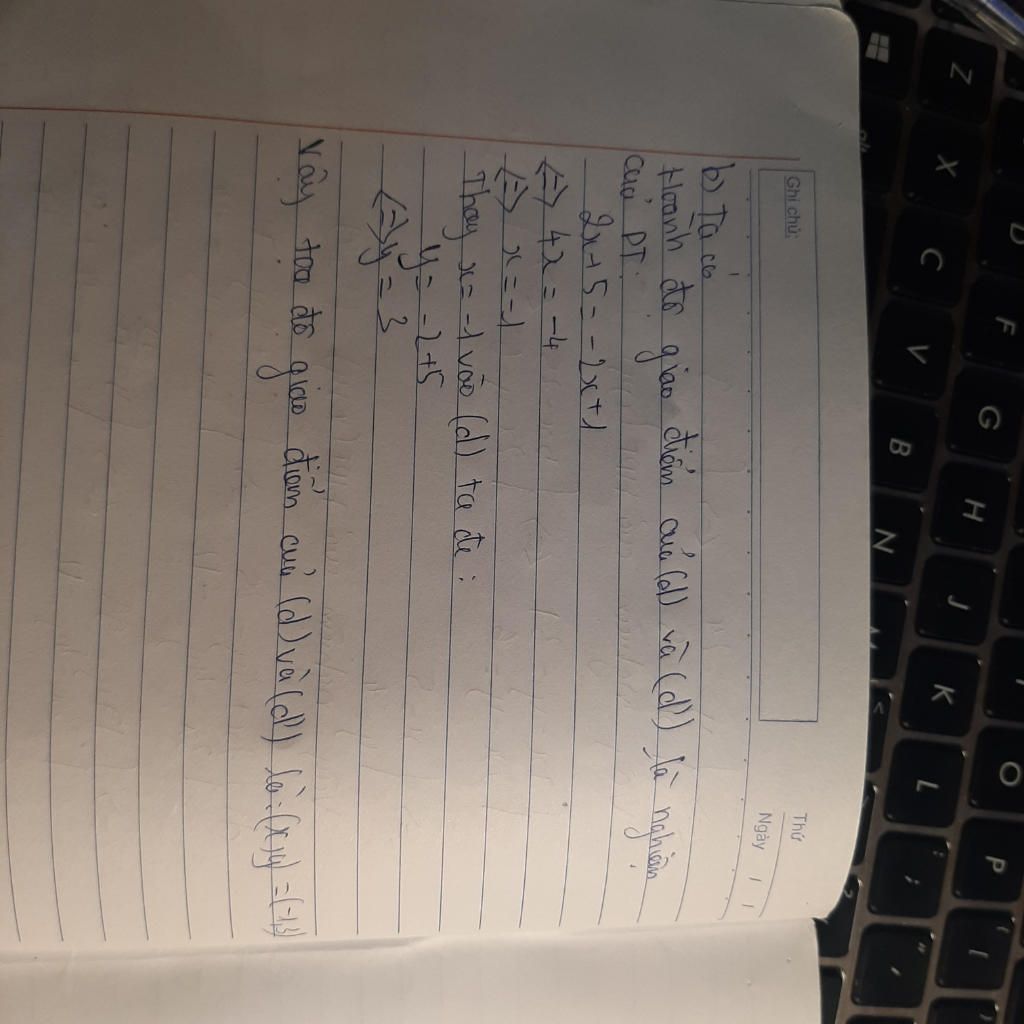 Ghi chú:
Thứ
Ngày / /
b) Ta có
Hoành độ giao điểm của (d) và (d') là nghiệm
của PT:
2x+5 = -2x+1
<=> 4x = -4
<=> x = -1
Thay x = -1 vào (d) ta đc:
y = -2+5
<=> y = 3
Vậy toạ độ giao điểm của (d) và (d') là: (x,y) = (-1,3)
Z X C V B N M <
D F G H J K L ;
O P [ " '